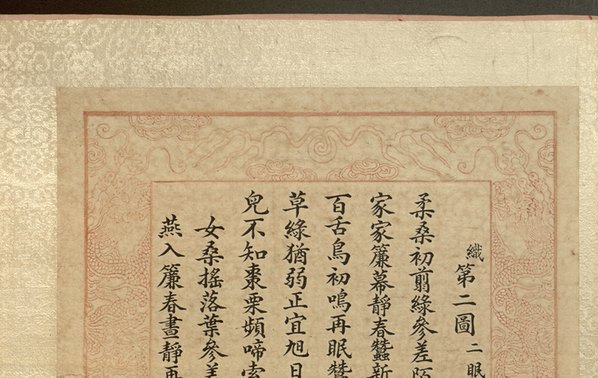 織第二圖二眠
柔桑初剪綠參差
家家簾幕靜春蠶新
百舌鳥初鳴再眠蠶
草綠猶弱正宜旭日
兒不知棗栗頻啼索
女桑搖落葉參差
燕入簾春晝靜再